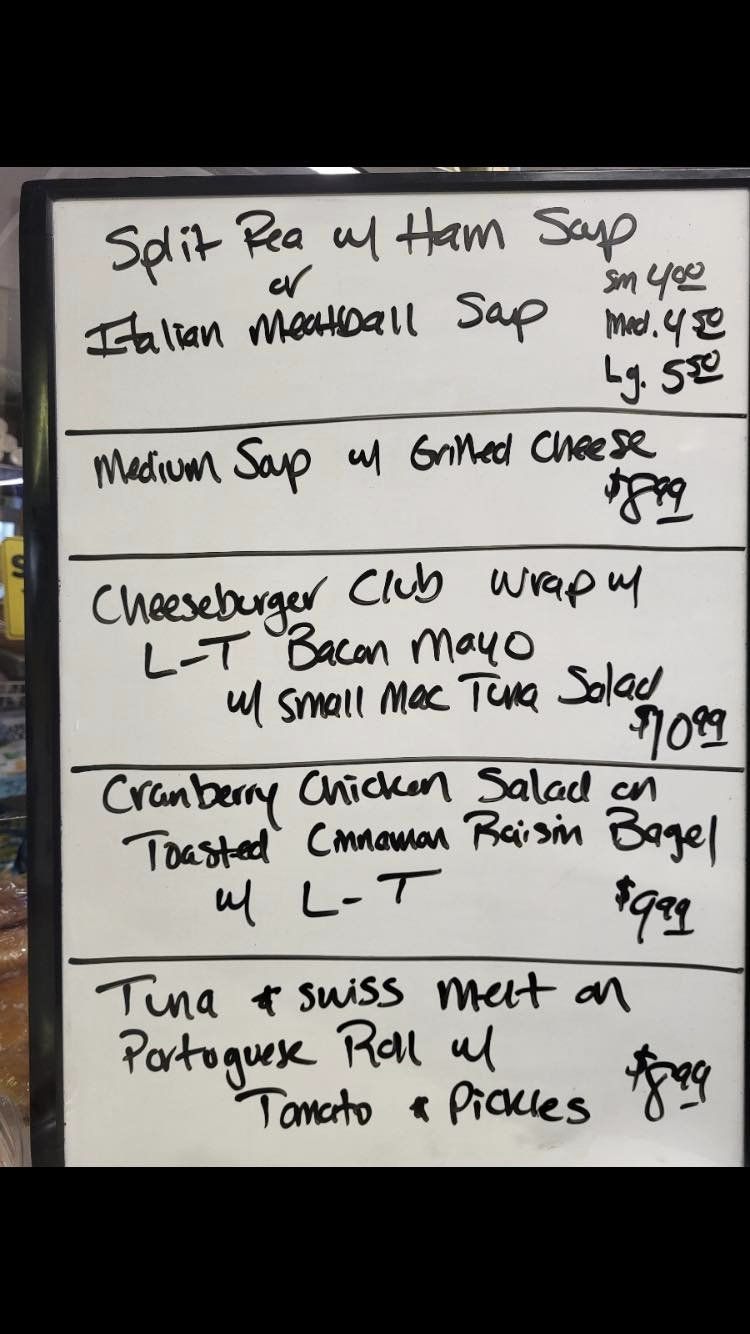 Split Pea w/ Ham Soup
or
Italian Meatball Soup
Sm 4.00
Med. 4.50
Lg. 5.50
Medium Soup w/ Grilled Cheese
$8.99
Cheeseburger Club Wrap w/
L-T Bacon Mayo
w/ Small Mac Tuna Salad
$10.99
Cranberry Chicken Salad on
Toasted Cinnamon Raisin Bagel
w/ L-T $9.99
Tuna & Swiss Melt on
Portuguese Roll w/
Tomato & Pickles $8.99